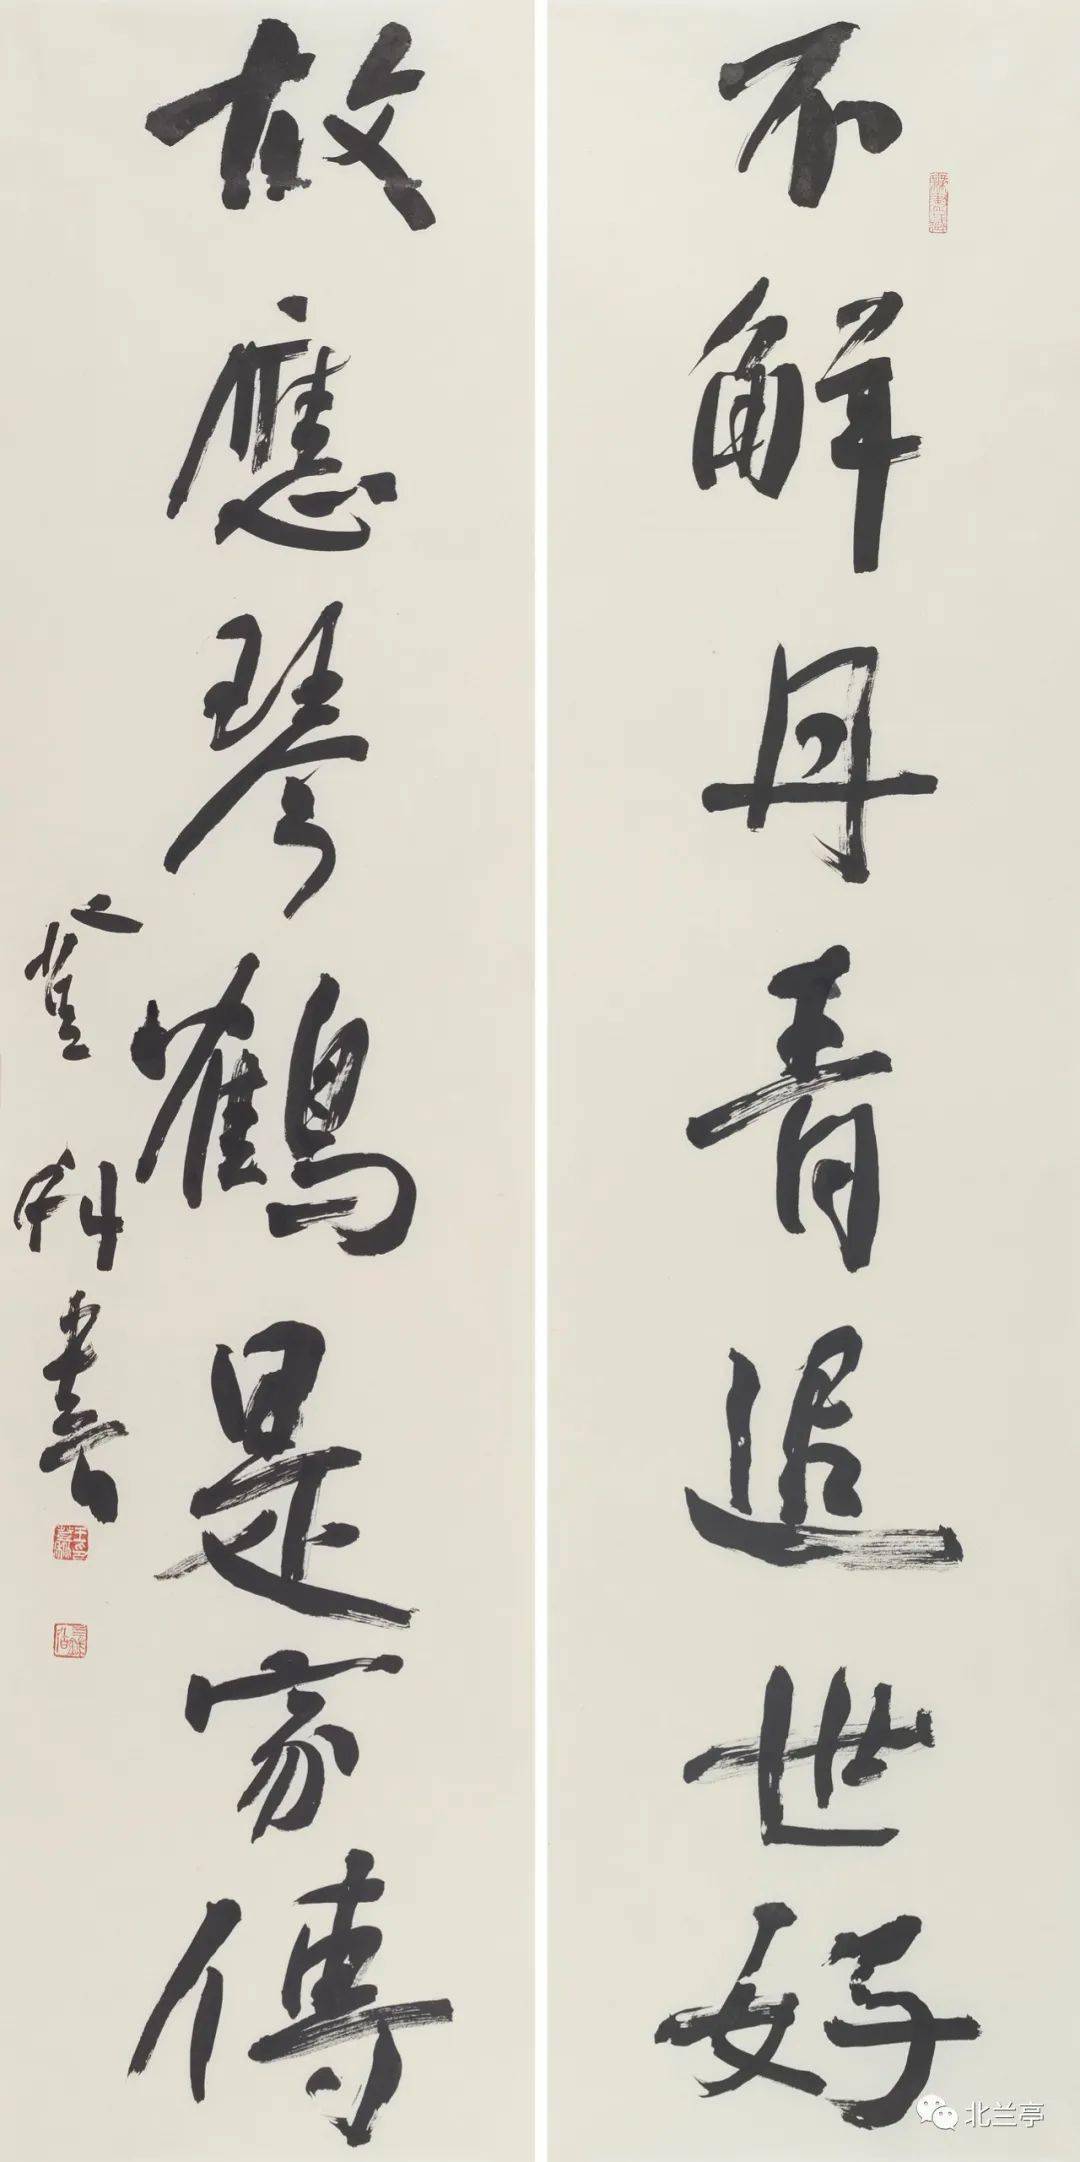 不解丹青追世好
故應琴鶴是家傳
北兰亭